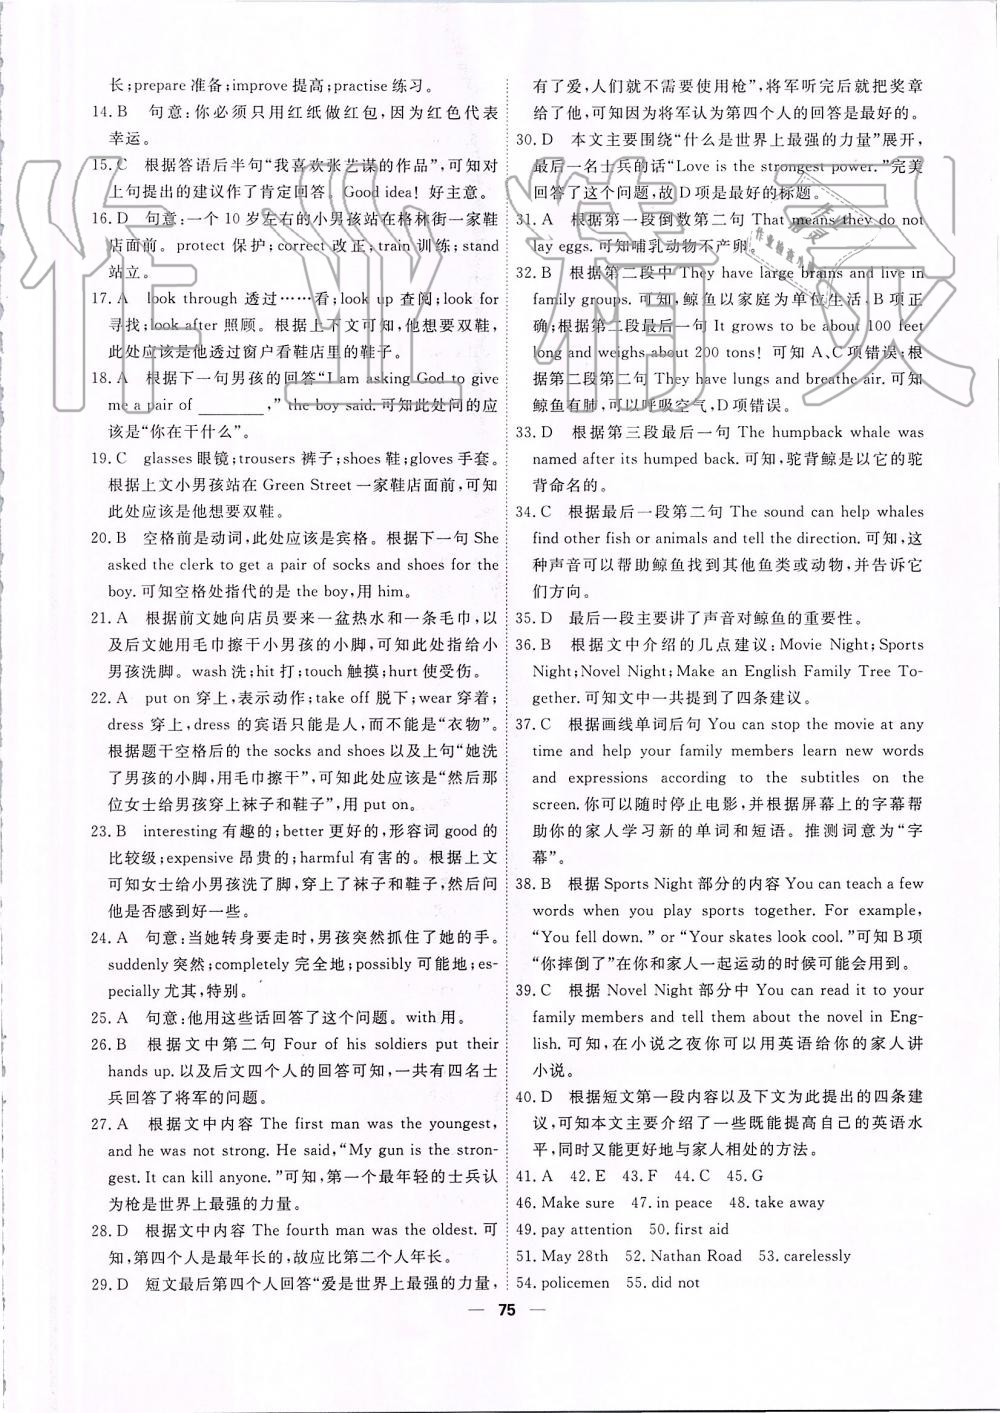 长;prepare 准备;improve 提高;practise 练习。
14. B 句意:你必须只用红纸做红包,因为红色代表
幸运。
15. C 根据答语后半句“我喜欢张艺谋的作品”,可知对
上句提出的建议作了肯定回答。Good idea! 好主意。
16. D 句意:一个 10 岁左右的小男孩站在格林街一家鞋
店面前。protect 保护;correct 改正;train 训练;stand
站立。
17. A look through 透过……看;look up 查阅;look for
寻找;look after 照顾。根据上下文可知,他想要双鞋,
此处应该是他透过窗户看鞋店里的鞋子。
18. A 根据下一句男孩的回答“I am asking God to give
me a pair of ________,” the boy said. 可知此处问的应
该是“你在干什么”。
19. C glasses 眼镜;trousers 裤子;shoes 鞋;gloves 手套。
根据上文小男孩站在 Green Street 一家鞋店面前,可知
此处应该是他想要双鞋。
20. B 空格前是动词,此处应该是宾格。根据下一句 She
asked the clerk to get a pair of socks and shoes for the
boy. 可知空格处指代的是 the boy,用 him。
21. A 根据前文她向店员要来一盆热水和一条毛巾,以
及后文她用毛巾擦干小男孩的小脚,可知此处指给小
男孩洗脚。wash 洗;hit 打;touch 触摸;hurt 使受伤。
22. A put on 穿上,表示动作;take off 脱下;wear 穿着;
dress 穿上,dress 的宾语只能是人,而不能是“衣物”。
根据题干空格后的 the socks and shoes 以及上句“她洗
了男孩的小脚,用毛巾擦干”,可知此处应该是“然后那
位女士给男孩穿上袜子和鞋子”,用 put on。
23. B interesting 有趣的;better 更好的,形容词 good 的
比较级;expensive 昂贵的;harmful 有害的。根据上文
可知女士给小男孩洗了脚,穿上了袜子和鞋子,然后问
他是否感到好一些。
24. A 句意:当她转身要走时,男孩突然抓住了她的手。
suddenly 突然;completely 完全地;possibly 可能地;es-
pecially 尤其,特别。
25. A 句意:他用这些话回答了这个问题。with 用。
26. B 根据文中第二句 Four of his soldiers put their
hands up. 以及后文四个人的回答可知,一共有四名士
兵回答了将军的问题。
27. A 根据文中内容 The first man was the youngest,
and he was not strong. He said, “My gun is the stron-
gest. It can kill anyone.”可知,第一个最年轻的士兵认
为枪是世界上最强的力量。
28. D 根据文中内容 The fourth man was the oldest. 可
知,第四个人是最年长的,故应比第二个人年长。
29. D 短文最后第四个人回答“爱是世界上最强的力量,
有了爱,人们就不需要使用枪”,将军听完后就把奖章
给了他,可知因为将军认为第四个人的回答是最好的。
30. D 本文主要围绕“什么是世界上最强的力量”展开,
最后一名士兵的话“Love is the strongest power.”完美
回答了这个问题,故 D 项是最好的标题。
31. A 根据第一段倒数第二句 That means they do not
lay eggs. 可知哺乳动物不产卵。
32. B 根据第二段中 They have large brains and live in
family groups. 可知,鲸鱼以家庭为单位生活,B 项正
确;根据第二段最后一句 It grows to be about 100 feet
long and weighs about 200 tons! 可知 A、C 项错误;根
据第二段第二句 They have lungs and breathe air. 可知
鲸鱼有肺,可以呼吸空气,D 项错误。
33. D 根据第三段最后一句 The humpback whale was
named after its humped back. 可知,驼背鲸是以它的驼
背命名的。
34. C 根据最后一段第二句 The sound can help whales
find other fish or animals and tell the direction. 可知,这
种声音可以帮助鲸鱼找到其他鱼类或动物,并告诉它
们方向。
35. D 最后一段主要讲了声音对鲸鱼的重要性。
36. B 根据文中介绍的几点建议:Movie Night;Sports
Night;Novel Night;Make an English Family Tree To-
gether. 可知文中一共提到了四条建议。
37. C 根据画线单词后句 You can stop the movie at any
time and help your family members learn new words
and expressions according to the subtitles on the
screen. 你可以随时停止电影,并根据屏幕上的字幕帮
助你的家人学习新的单词和短语。推测词意为“字
幕”。
38. B 根据 Sports Night 部分的内容 You can teach a few
words when you play sports together. For example,
“You fell down. ” or “Your skates look cool. ”可知 B 项
“你摔倒了”在你和家人一起运动的时候可能会用到。
39. C 根据 Novel Night 部分中 You can read it to your
family members and tell them about the novel in Eng-
lish. 可知,在小说之夜你可以用英语给你的家人讲
小说。
40. D 根据短文第一段内容以及下文为此提出的四条建
议,可知本文主要介绍了一些既能提高自己的英语水
平,同时又能更好地与家人相处的方法。
41. A 42. E 43. F 44. C 45. G
46. Make sure 47. in peace 48. take away
49. pay attention 50. first aid
51. May 28th 52. Nathan Road 53. carelessly
54. policemen 55. did not
— 75 —
作业精灵